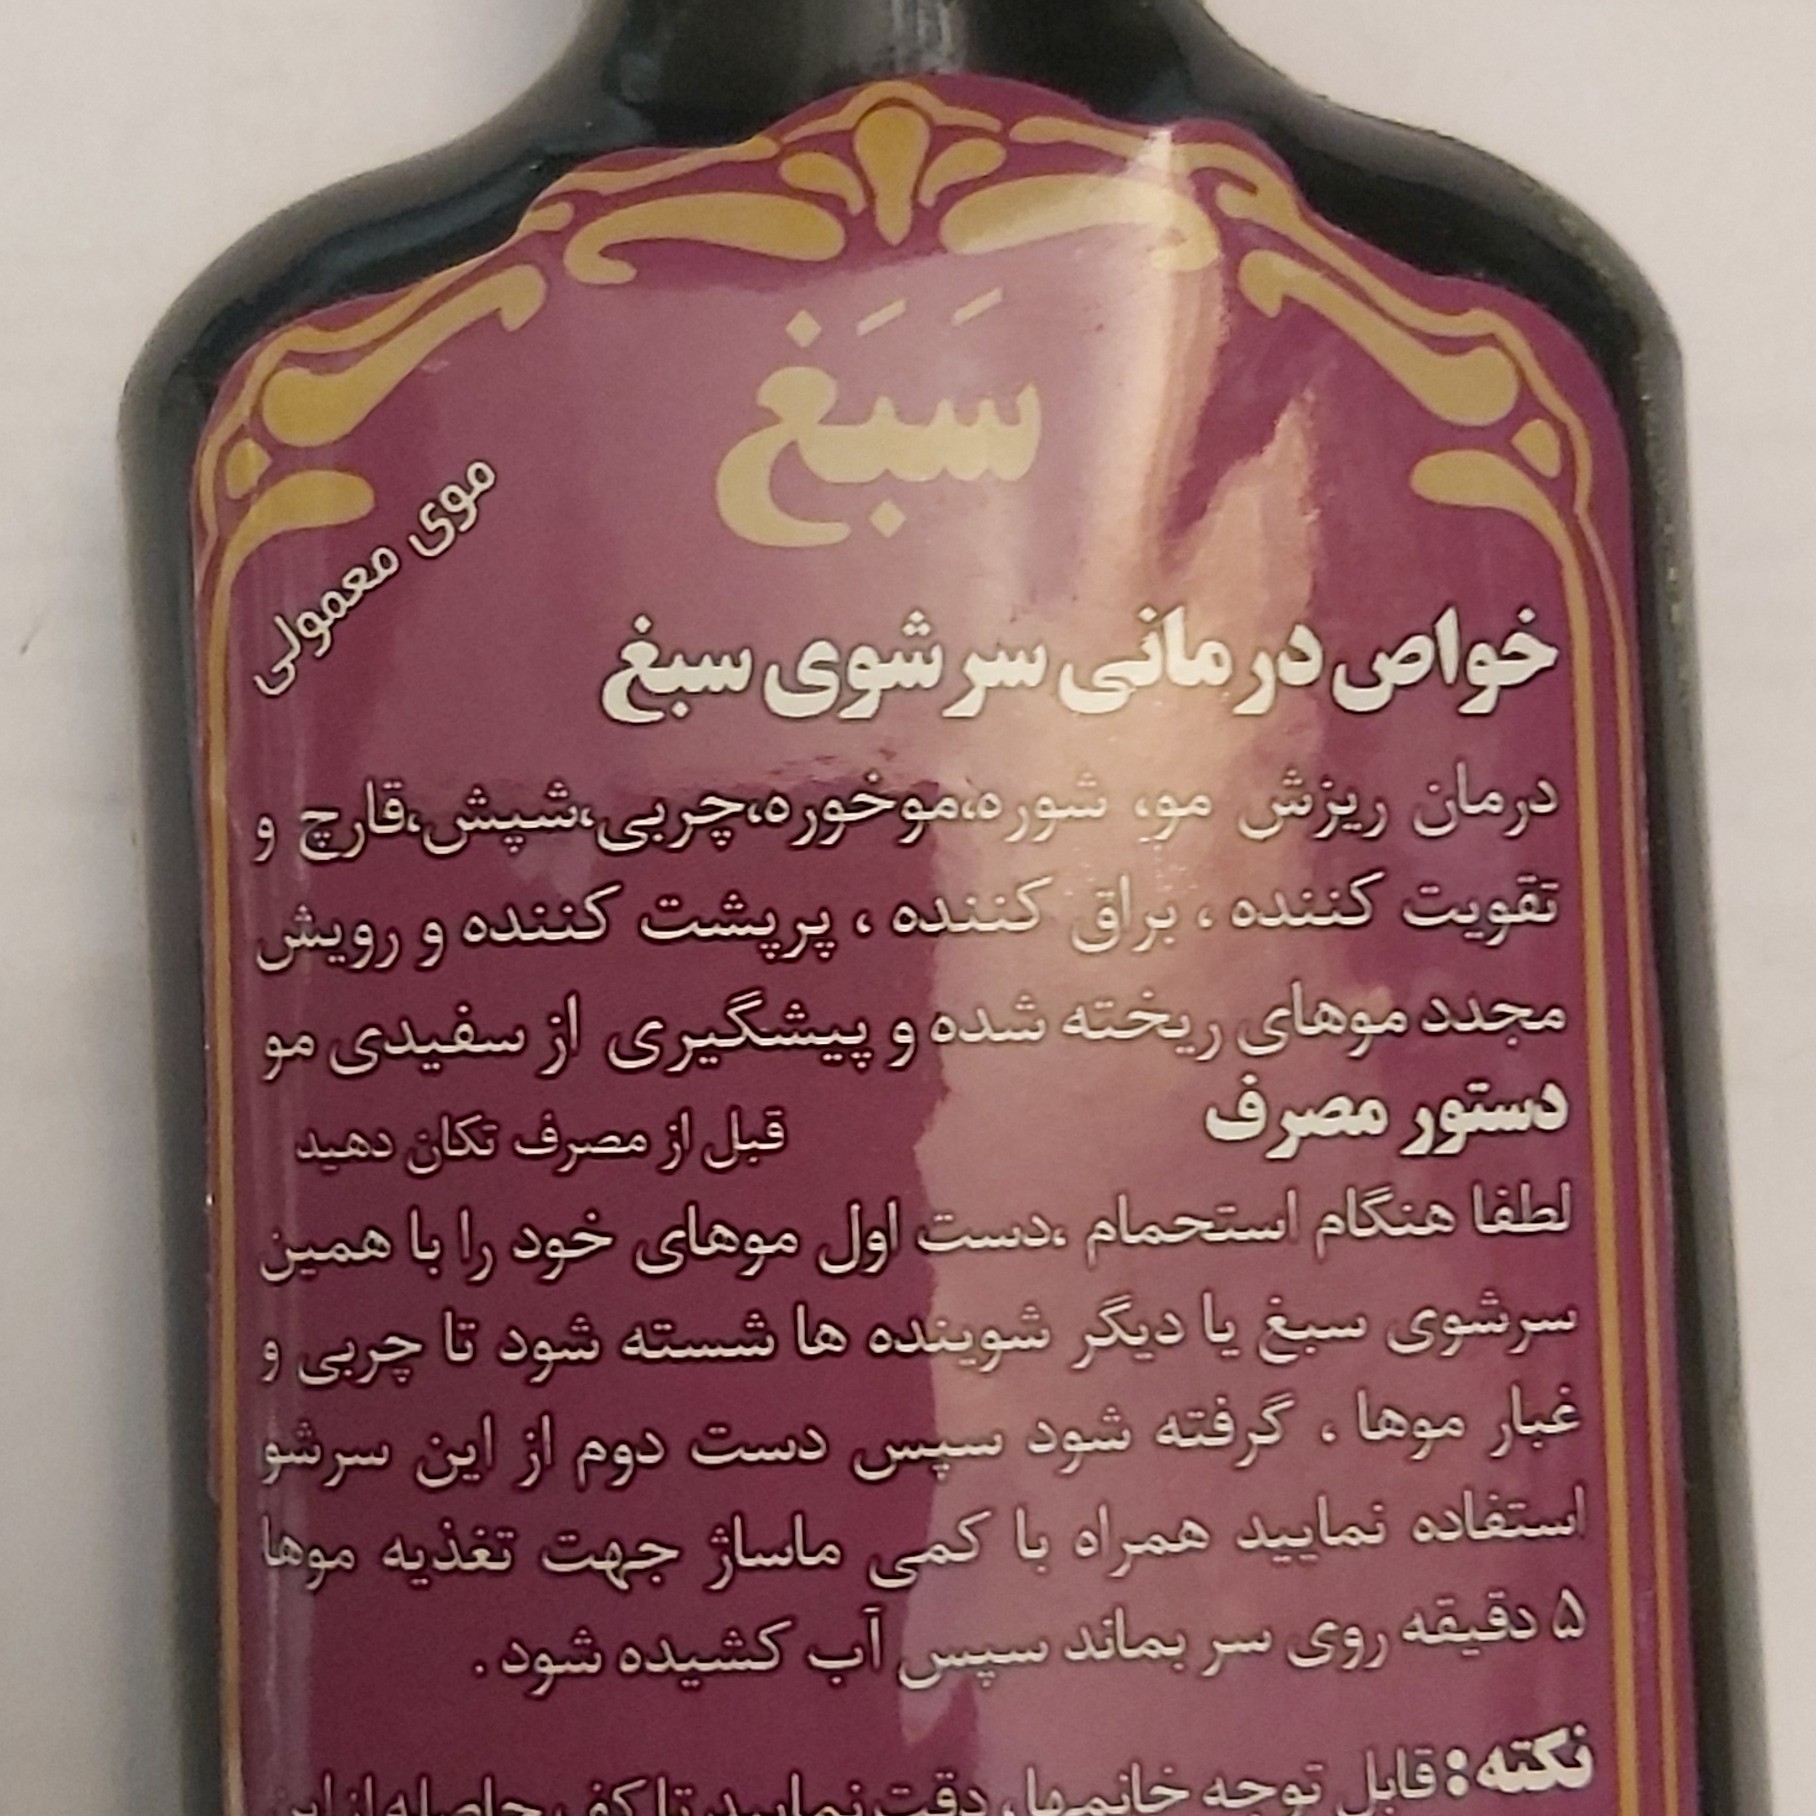 سَبَغ
موی معمولی
خواص درمانی سرشوی سبغ
درمان ریزش مو، شوره،موخوره،چربی،شپش،قارچ و
تقویت کننده ، براق کننده ، پرپشت کننده و رویش
مجدد موهای ریخته شده و پیشگیری از سفیدی مو
دستور مصرف
قبل از مصرف تکان دهید
لطفا هنگام استحمام ،دست اول موهای خود را با همین
سرشوی سبغ یا دیگر شوینده ها شسته شود تا چربی و
غبار موها ، گرفته شود سپس دست دوم از این سرشو
استفاده نمایید همراه با کمی ماساژ جهت تغذیه موها
۵ دقیقه روی سر بماند سپس آب کشیده شود .
نکته: قابل توجه خانمها، دقت نمایید تا کف حاصله از این